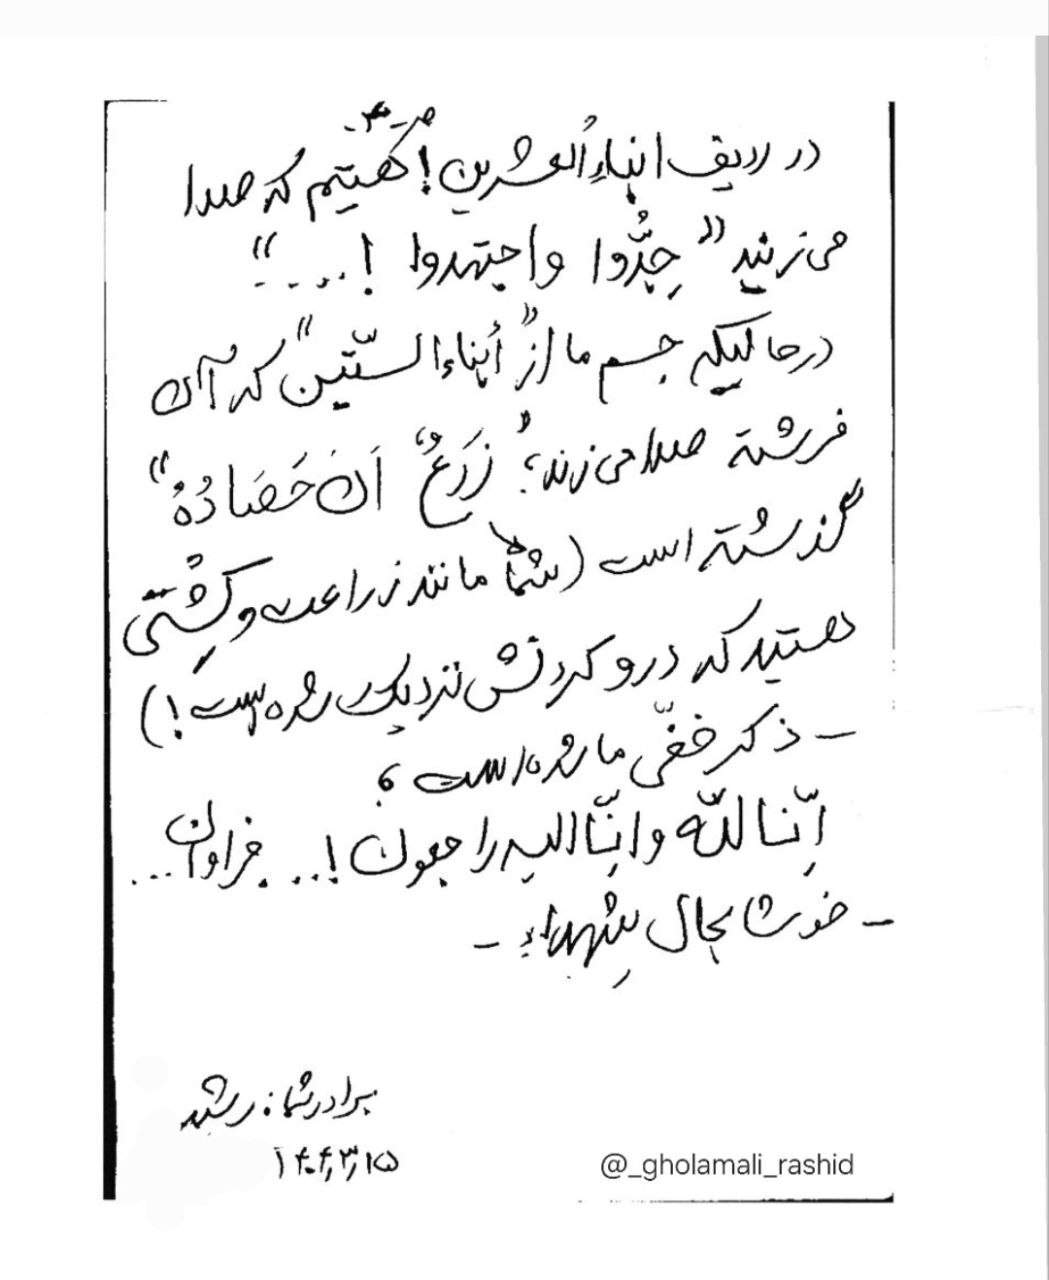 -۳-
در ردیف ابناءِ العشرین! گفتیم که صدا
می‌زنند "جِدُّوا واجتهدوا !...."
درحالیکه جسم ما از "أبناء الستّین" که آن
فرشته صدا می‌زند؛ "زَرَعٌ اَنَ حَصَادُهُ"
گذشته است (شما مانند زراعت و کِشْتی
هستید که درو کردنش نزدیک شده است!)
- ذکر خفیّ ما شده است؛
اِنّا للّه و اِنّا الیه راجعون!... فراوان...
- خوشا بحال شهداءِ -
برادر شما: رشید
۱۴۰۴,۳,۱۵
@_gholamali_rashid